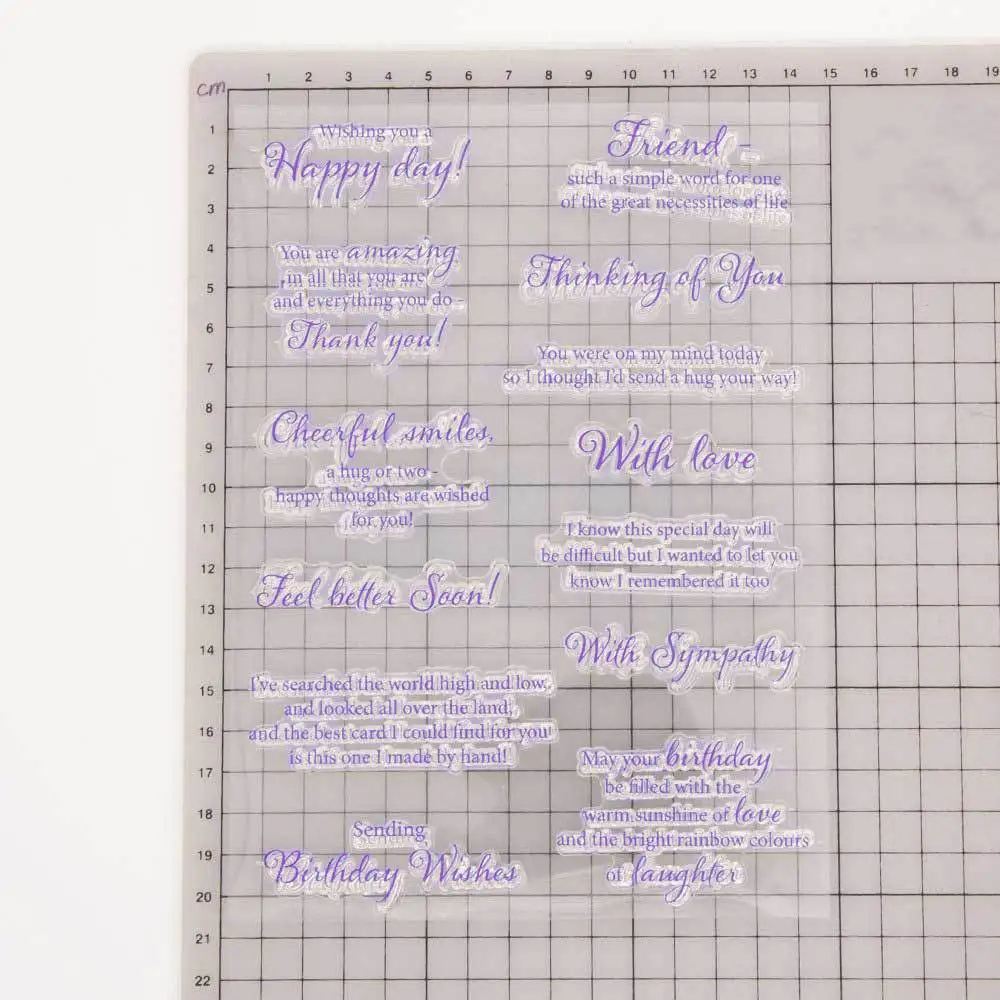 cm
1 2 3 4 5 6 7 8 9 10 11 12 13 14 15 16 17 18 19
1
2
3
4
5
6
7
8
9
10
11
12
13
14
15
16
17
18
19
20
21
22
Wishing you a
Happy day!
You are amazing
in all that you are
and everything you do -
Thank you!
Cheerful smiles,
a hug or two -
happy thoughts are wished
for you!
Feel better Soon!
I've searched the world high and low,
and looked all over the land,
and the best card I could find for you
is this one I made by hand!
Sending
Birthday Wishes
Friend -
such a simple word for one
of the great necessities of life
Thinking of You
You were on my mind today
so I thought I'd send a hug your way!
With love
I know this special day will
be difficult but I wanted to let you
know I remembered it too
With Sympathy
May your birthday
be filled with the
warm sunshine of love
and the bright rainbow colours
of laughter